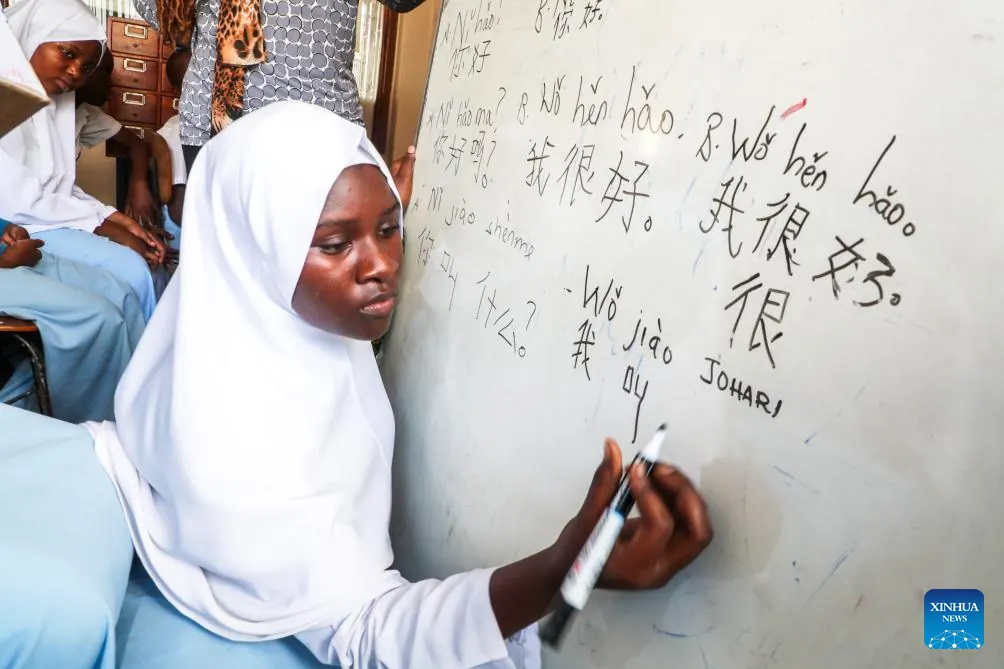 A. Nǐ hǎo? B. Nǐ hǎo
你好 你好
A. Nǐ hǎo ma? B. Wǒ hěn hǎo.
你好吗? 我很好。
B. Wǒ hěn hǎo.
我很好。
很
A. Nǐ jiào shénme
你叫什么?
- Wǒ jiào JOHARI
我叫
XINHUA
NEWS